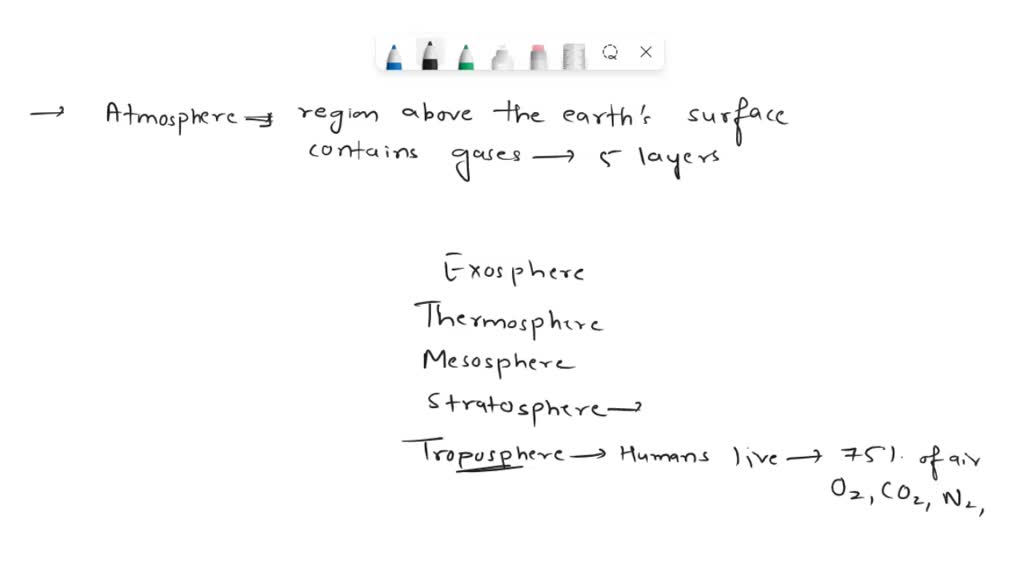 → Atmosphere → region above the earth's surface
contains gases → 5 layers
Exosphere
Thermosphere
Mesosphere
Stratosphere →
Troposphere → Humans live → 75% of air
O₂, CO₂, N₂,